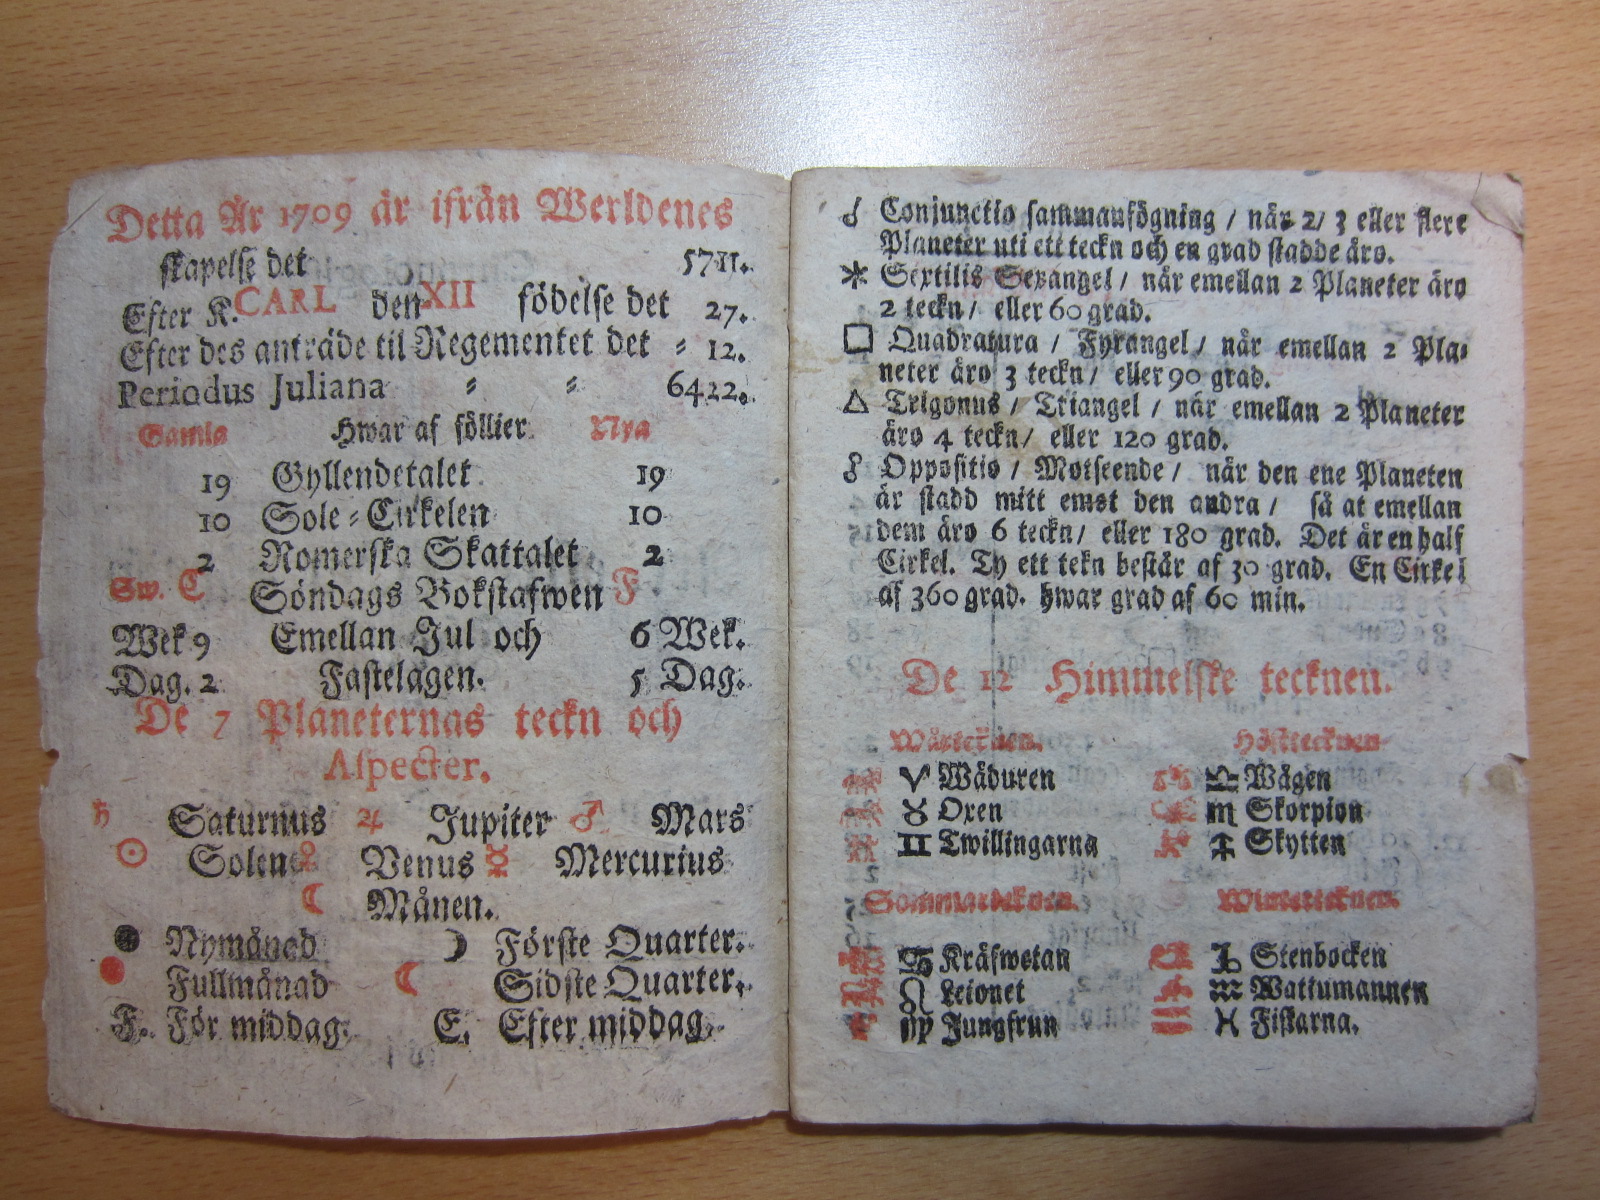 Detta År 1709 är ifrån Werldenes
skapelse det 5711.
Efter K. CARL den XII födelse det 27.
Efter des anträde til Regementet det = 12.
Periodus Juliana = = 6422.
Gamla Hwar af föllier Nya
19 Gyllendetalet 19
10 Sole = Cirkelen 10
2 Romerska Skattalet 2
Sw. C Söndags Bokstafwen F
Wek 9 Emellan Jul och 6 Wek.
Dag. 2 Fastelagen. 5 Dag.
De 7 Planeternas teckn och
Aspecter.
♄ Saturnus ♃ Jupiter ♂ Mars
☉ Solen ♀ Venus ☿ Mercurius
☾ Månen.
● Nymånad ☽ Förste Quarter.
● Fullmånad ☾ Sidste Quarter.
F. För middag. E. Efter middag.
☌ Conjunctio sammanfögning / när 2/ 3 eller flere
Planeter uti ett teckn och en grad stadde äro.
⚹ Sextilis Sexangel / när emellan 2 Planeter äro
2 teckn / eller 60 grad.
□ Quadratura / Fyrangel / när emellan 2 Pla=
neter äro 3 teckn / eller 90 grad.
△ Trigonus / Triangel / när emellan 2 Planeter
äro 4 teckn / eller 120 grad.
☍ Oppositio / Motseende / när den ene Planeten
är stadd mitt emot den andra / så at emellan
dem äro 6 teckn / eller 180 grad. Det är en half
Cirkel. Ty ett tekn bestär af 30 grad. En Cirkel
af 360 grad. hwar grad af 60 min.
De 12 Himmelske tecknen.
Wårtecknen. Hösttecknen
♈ Wäduren ♎ Wågen
♉ Oxen ♏ Skorpion
♊ Twillingarna ♐ Skytten
Sommartecknen. Wintertecknen.
♋ Kräfwetan ♑ Stenbocken
♌ Leionet ♒ Wattumannen
♍ Jungfrun ♓ Fiskarna.